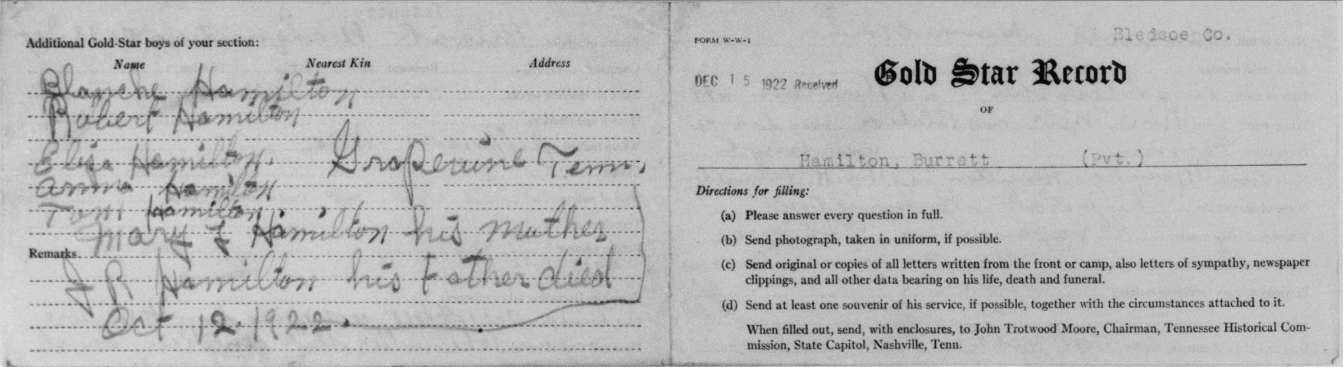 Additional Gold-Star boys of your section:
Name Nearest Kin Address
Blanche Hamilton
Robert Hamilton
Eliza Hamilton. Grapevine Tenn.
Anna Hamilton
Tom Hamilton
Mary J Hamilton his mother
Remarks
J R Hamilton his Father died
Oct 12. 1922.
FORM W-W-1
Bledsoe Co.
DEC 15 1922 Received
Gold Star Record
OF
Hamilton, Burrett (Pvt.)
Directions for filling:
(a) Please answer every question in full.
(b) Send photograph, taken in uniform, if possible.
(c) Send original or copies of all letters written from the front or camp, also letters of sympathy, newspaper
clippings, and all other data bearing on his life, death and funeral.
(d) Send at least one souvenir of his service, if possible, together with the circumstances attached to it.
When filled out, send, with enclosures, to John Trotwood Moore, Chairman, Tennessee Historical Com-
mission, State Capitol, Nashville, Tenn.